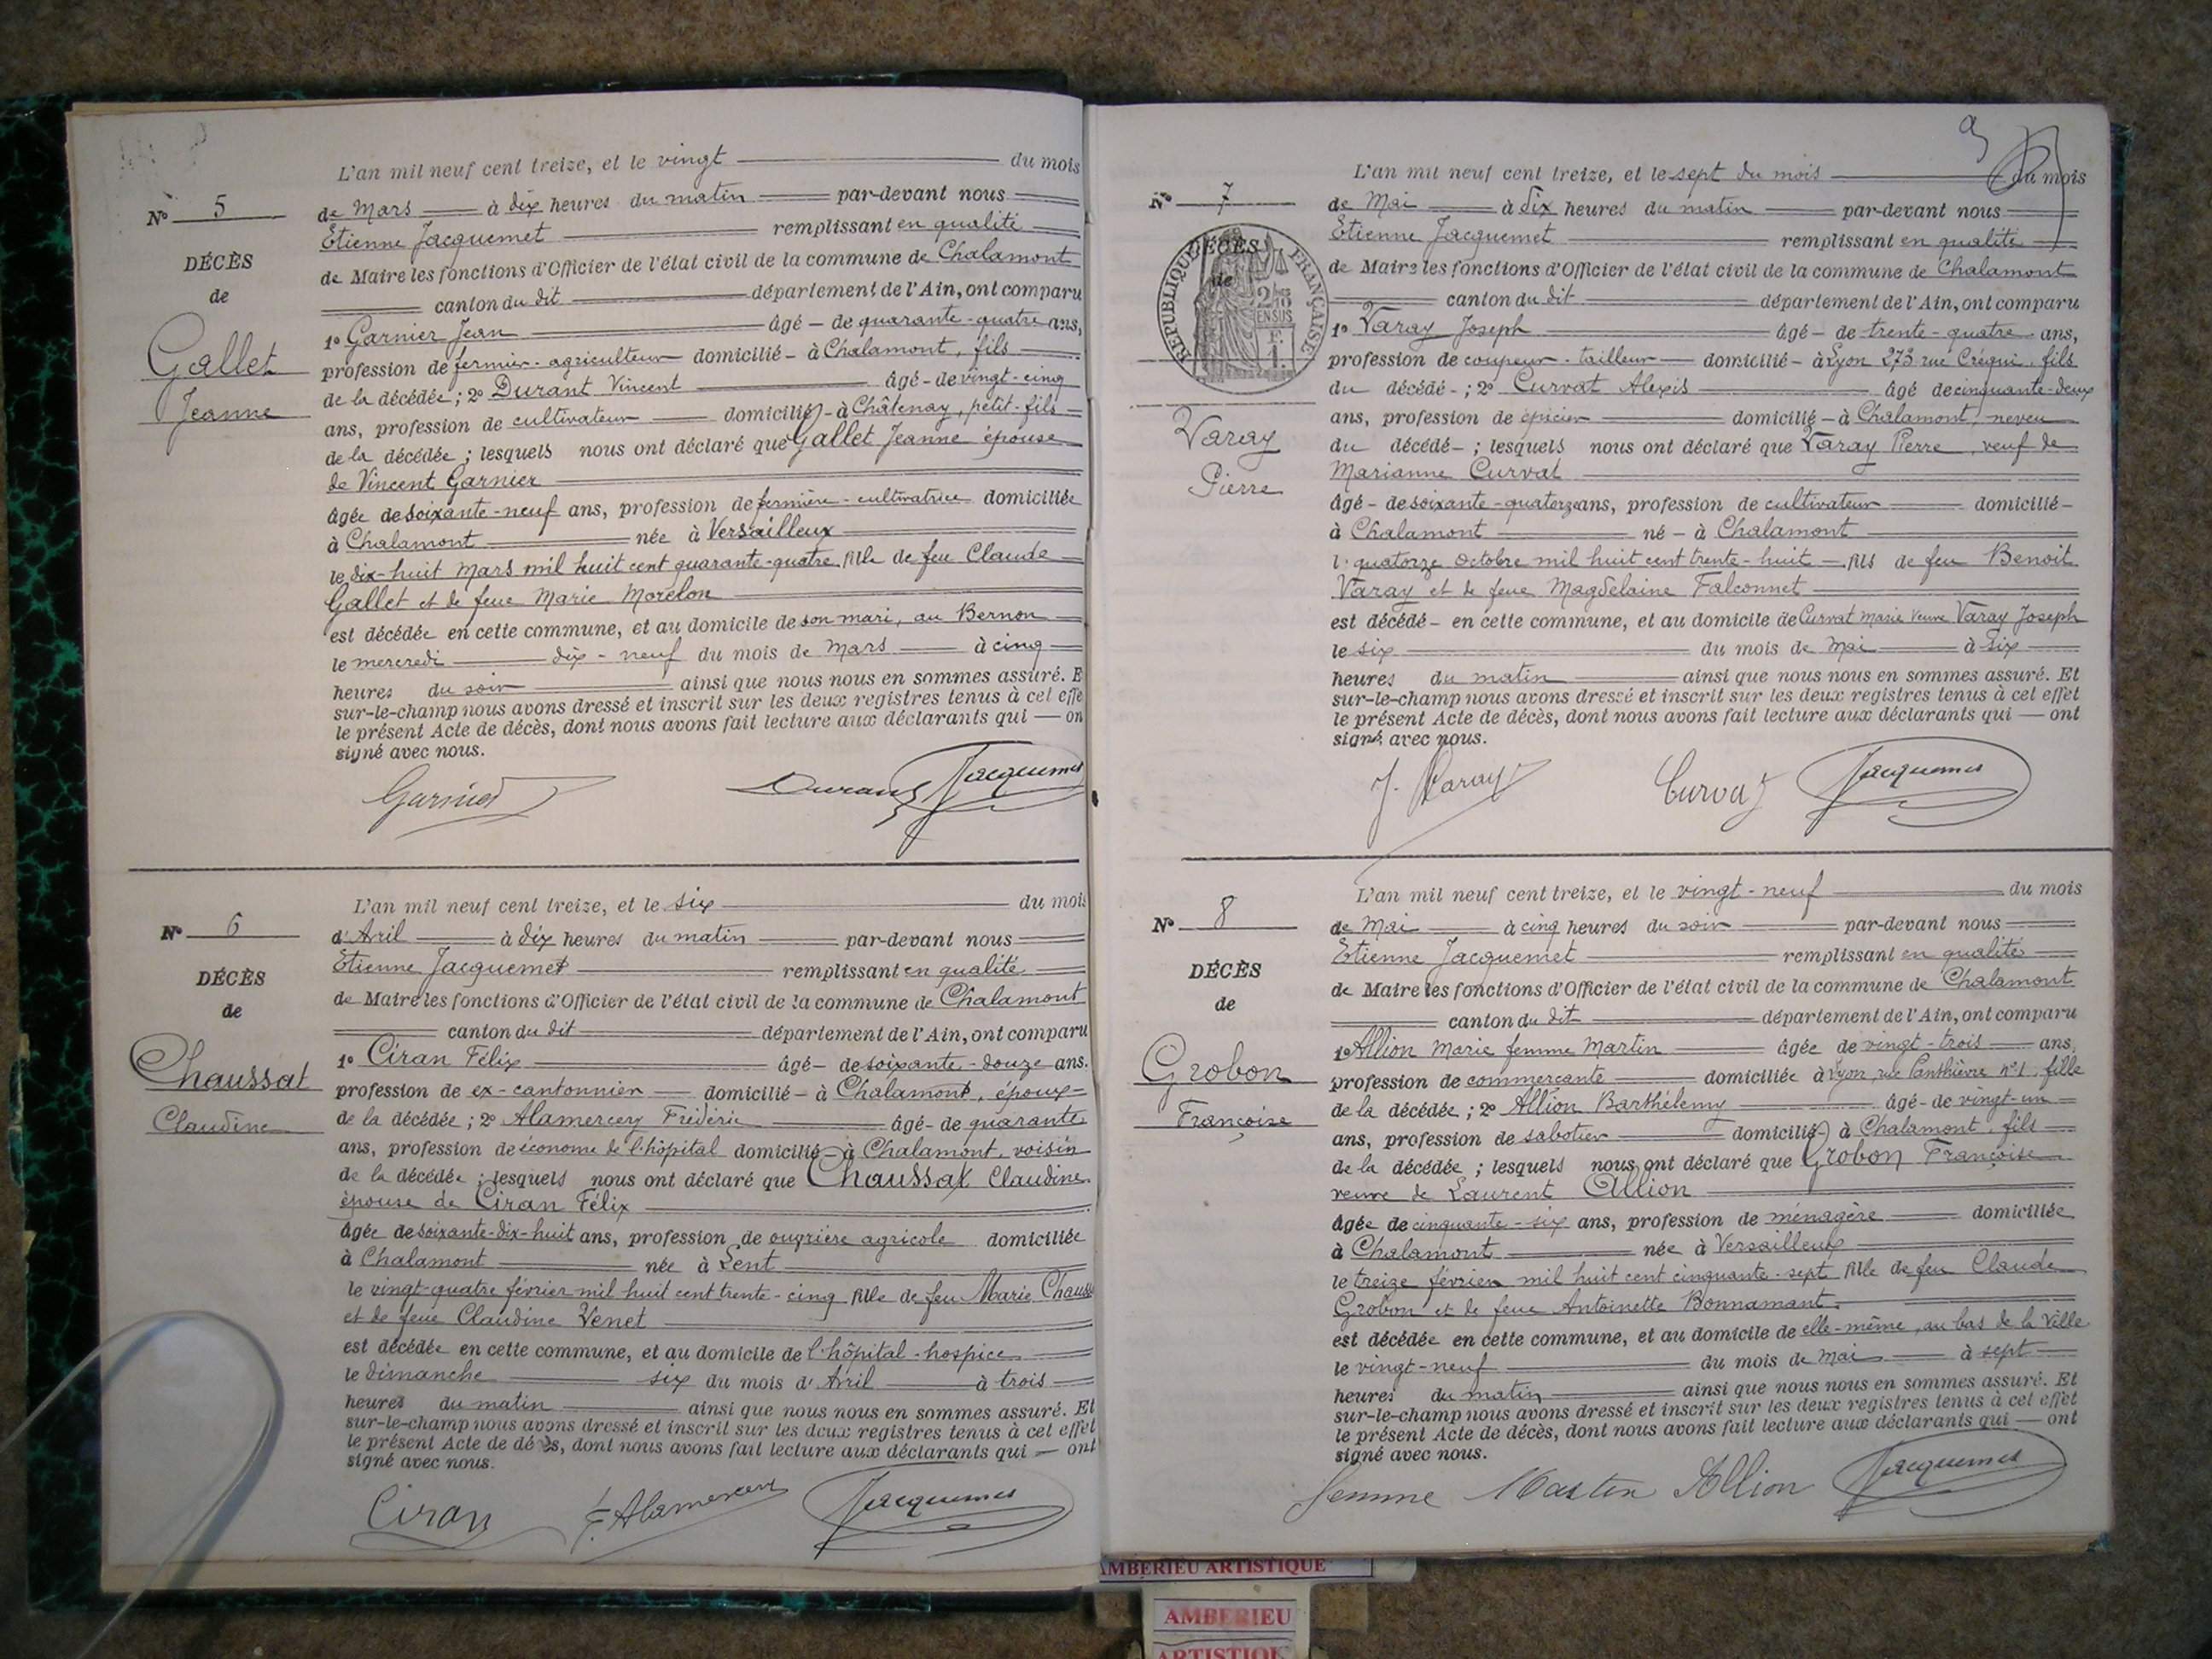 L'an mil neuf cent treize, et le vingt du mois
N° 5
de Mars à dix heures du matin par-devant nous
Etienne Jacquemet remplissant en qualité
DÉCÈS
de Maire les fonctions d'Officier de l'état civil de la commune de Chalamont
de
canton du dit département de l'Ain, ont comparu
1° Garnier Jean âgé de quarante-quatre ans,
Gallet
profession de fermier-agriculteur domicilié à Chalamont, fils
de la décédée; 2° Durant Vincent âgé de vingt-cinq
Jeanne
ans, profession de cultivateur domicilié à Châtenay, petit-fils
de la décédée; lesquels nous ont déclaré que Gallet Jeanne épouse
de Vincent Garnier
âgée de soixante-neuf ans, profession de fermière-cultivatrice domiciliée
à Chalamont née à Versailleux
le dix-huit Mars mil huit cent quarante-quatre fille de feu Claude
Gallet et de feue Marie Morelon
est décédée en cette commune, et au domicile de son mari, au Bernon
le mercredi dix-neuf du mois de Mars à cinq
heures du soir ainsi que nous nous en sommes assuré. E
sur-le-champ nous avons dressé et inscrit sur les deux registres tenus à cel effe
le présent Acte de décès, dont nous avons fait lecture aux déclarants qui — on
signé avec nous.
Garnier Durant Jacquemet
L'an mil neuf cent treize, et le six du mois
N° 6
d'Avril à dix heures du matin par-devant nous
Etienne Jacquemet remplissant en qualité
DÉCÈS
de Maire les fonctions d'Officier de l'état civil de la commune de Chalamont
de
canton du dit département de l'Ain, ont comparu
1° Ciran Félix âgé de soixante-douze ans.
Chaussat
profession de ex-cantonnier domicilié à Chalamont, époux
de la décédée; 2° Alamercery Frédéric âgé de quarante
Claudine
ans, profession de économe de l'hôpital domicilié à Chalamont, voisin
de la décédée; lesquels nous ont déclaré que Chaussat Claudine
épouse de Ciran Félix
âgée de soixante-dix-huit ans, profession de ouvrière agricole domiciliée
à Chalamont née à Lent
le vingt-quatre février mil huit cent trente-cinq fille de feu Marie Chauss
et de feue Claudine Venet
est décédée en cette commune, et au domicile de l'hôpital-hospice
le dimanche six du mois d'Avril à trois
heures du matin ainsi que nous nous en sommes assuré. Et
sur-le-champ nous avons dressé et inscrit sur les deux registres tenus à cel effet
le présent Acte de décès, dont nous avons fait lecture aux déclarants qui — ont
signé avec nous.
Ciran F. Alamercery Jacquemet
9
L'an mil neuf cent treize, et le sept du mois du mois
N° 7
de Mai à dix heures du matin par-devant nous
Etienne Jacquemet remplissant en qualité
DÉCÈS
de Maire les fonctions d'Officier de l'état civil de la commune de Chalamont
de
RÉPUBLIQUE FRANÇAISE
2/10 EN SUS
F. 1.
canton du dit département de l'Ain, ont comparu
1° Varay Joseph âgé de trente-quatre ans,
profession de coupeur-tailleur domicilié à Lyon 273 rue Créqui, fils
du décédé; 2° Curvat Alexis âgé de cinquante-deux
Varay
ans, profession de épicier domicilié à Chalamont, neveu
du décédé; lesquels nous ont déclaré que Varay Pierre, veuf de
Pierre
Marianne Curvat
âgé de soixante-quatorze ans, profession de cultivateur domicilié
à Chalamont né à Chalamont
le quatorze Octobre mil huit cent trente-huit fils de feu Benoit
Varay et de feue Magdelaine Falconnet
est décédé en cette commune, et au domicile de Curvat Marie veuve Varay Joseph
le six du mois de Mai à six
heures du matin ainsi que nous nous en sommes assuré. Et
sur-le-champ nous avons dressé et inscrit sur les deux registres tenus à cel effet
le présent Acte de décès, dont nous avons fait lecture aux déclarants qui — ont
signé avec nous.
J. Varay Curvat Jacquemet
L'an mil neuf cent treize, et le vingt-neuf du mois
N° 8
de Mai à cinq heures du soir par-devant nous
Etienne Jacquemet remplissant en qualité
DÉCÈS
de Maire les fonctions d'Officier de l'état civil de la commune de Chalamont
de
canton du dit département de l'Ain, ont comparu
1° Allion Marie femme Martin âgée de vingt-trois ans,
Grobon
profession de commerçante domiciliée à Lyon, rue Penthièvre n°1, fille
de la décédée; 2° Allion Barthélemy âgé de vingt-un
Françoise
ans, profession de sabotier domicilié à Chalamont, fils
de la décédée; lesquels nous ont déclaré que Grobon Françoise
veuve de Laurent Allion
âgée de cinquante-six ans, profession de ménagère domiciliée
à Chalamont née à Versailleux
le treize février mil huit cent cinquante-sept fille de feu Claude
Grobon et de feue Antoinette Bonnamant.
est décédée en cette commune, et au domicile de elle-même, au bas de la Ville
le vingt-neuf du mois de Mai à sept
heures du matin ainsi que nous nous en sommes assuré. Et
sur-le-champ nous avons dressé et inscrit sur les deux registres tenus à cel effet
le présent Acte de décès, dont nous avons fait lecture aux déclarants qui — ont
signé avec nous.
femme Martin Allion Jacquemet
AMBERIEU ARTISTIQUE
AMBERIEU
ARTISTIQU